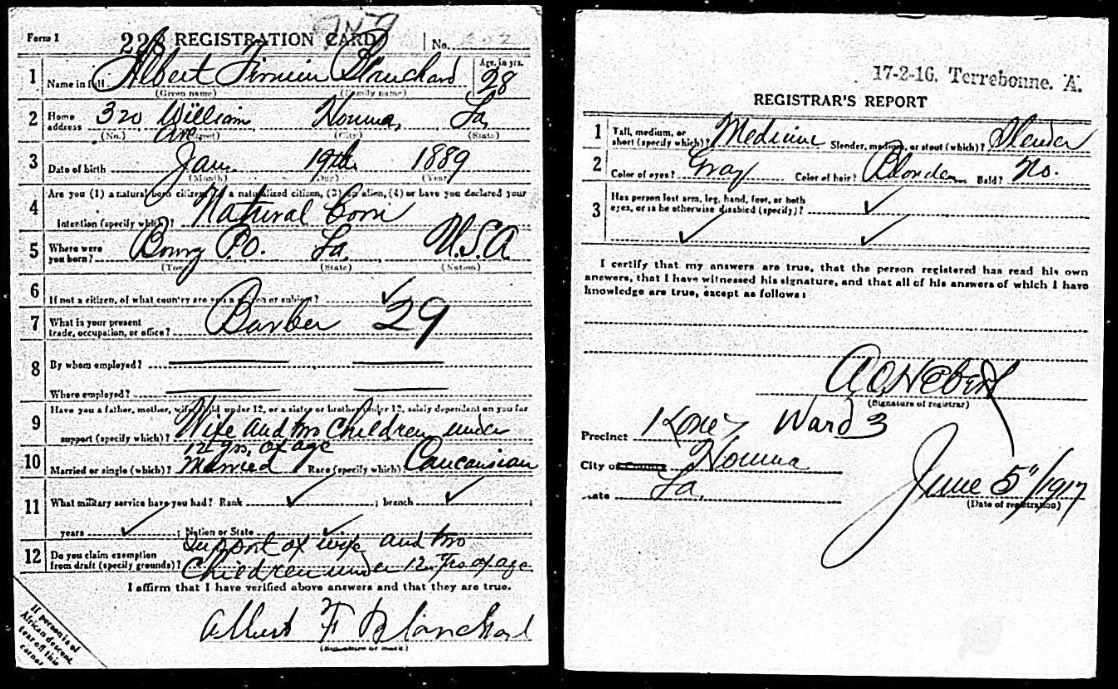 Form 1
228 REGISTRATION CARD No.
1 Name in full Albert Firmin Blanchard Age, in yrs. 28
(Given name) (Family name)
2 Home address 320 William Ave Houma, La,
(No.) (Street) (City) (State)
3 Date of birth Jan. 19th 1889
(Month) (Day) (Year)
4 Are you (1) a natural-born citizen, (2) a naturalized citizen, (3) an alien, (4) or have you declared your
intention (specify which)? Natural born
5 Where were you born? P.O. La. U.S.A
(Town) (State) (Nation)
6 If not a citizen, of what country are you a citizen or subject? ✓
7 What is your present trade, occupation, or office? Barber 29
8 By whom employed?
Where employed?
9 Have you a father, mother, wife, child under 12, or a sister or brother under 12, solely dependent on you for
support (specify which)? Wife and two Children under
12 yrs. of age
10 Married or single (which)? Married Race (specify which)? Caucausian
11 What military service have you had? Rank ✓ ; branch ✓ ;
years ✓ ; Nation or State ✓
12 Do you claim exemption from draft (specify grounds)? Support of wife and two
Children under 12 yrs of age
I affirm that I have verified above answers and that they are true.
Albert F Blanchard
(Signature or mark)
If person is of
African descent
tear off this
corner
17-2-16. Terrebonne. A.
REGISTRAR'S REPORT
1 Tall, medium, or short (specify which)? Medium Slender, medium, or stout (which)? Slender
2 Color of eyes? Gray Color of hair? Blonde Bald? No.
3 Has person lost arm, leg, hand, foot, or both
eyes, or is he otherwise disabled (specify)? ✓
✓ ✓
I certify that my answers are true, that the person registered has read his own
answers, that I have witnessed his signature, and that all of his answers of which I have
knowledge are true, except as follows:
A.C. Hebert
(Signature of registrar)
Precinct Ward 3
City or County Houma
State La.
June 5"/1917
(Date of registration)